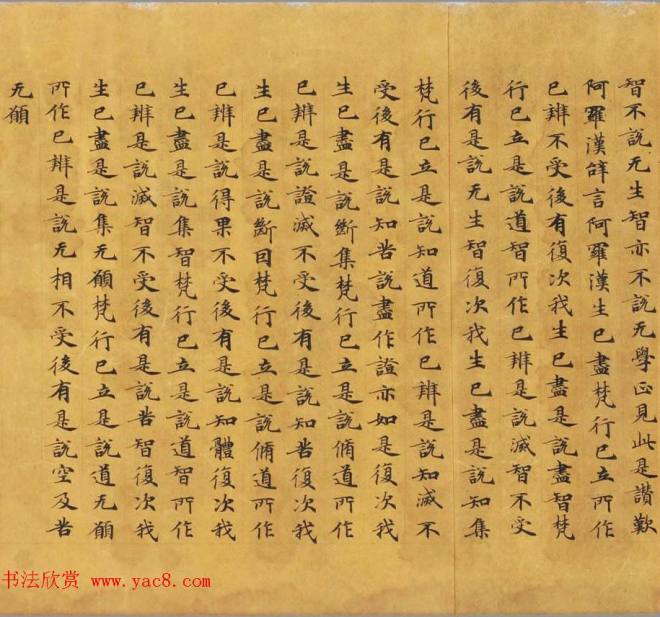 智不說无生智亦不說无學正見此是讃歎
阿羅漢辝言阿羅漢生已盡梵行已立所作
已辨不受後有復次我生已盡是說盡智梵
行已立是說道智所作已辨是說滅智不受
後有是說无生智復次我生已盡是說知集
梵行已立是說知道所作已辨是說知滅不
受後有是說知苦說盡作證亦如是復次我
生已盡是說斷集梵行已立是說脩道所作
已辨是說證滅不受後有是說知苦復次我
生已盡是說斷因梵行已立是說脩道所作
已辨是說得果不受後有是說知體復次我
生已盡是說集智梵行已立是說道智所作
已辨是說滅智不受後有是說苦智復次我
生已盡是說集无願梵行已立是說道无願
所作已辨是說无相不受後有是說空及苦
无願
书法欣赏 www.yac8.com